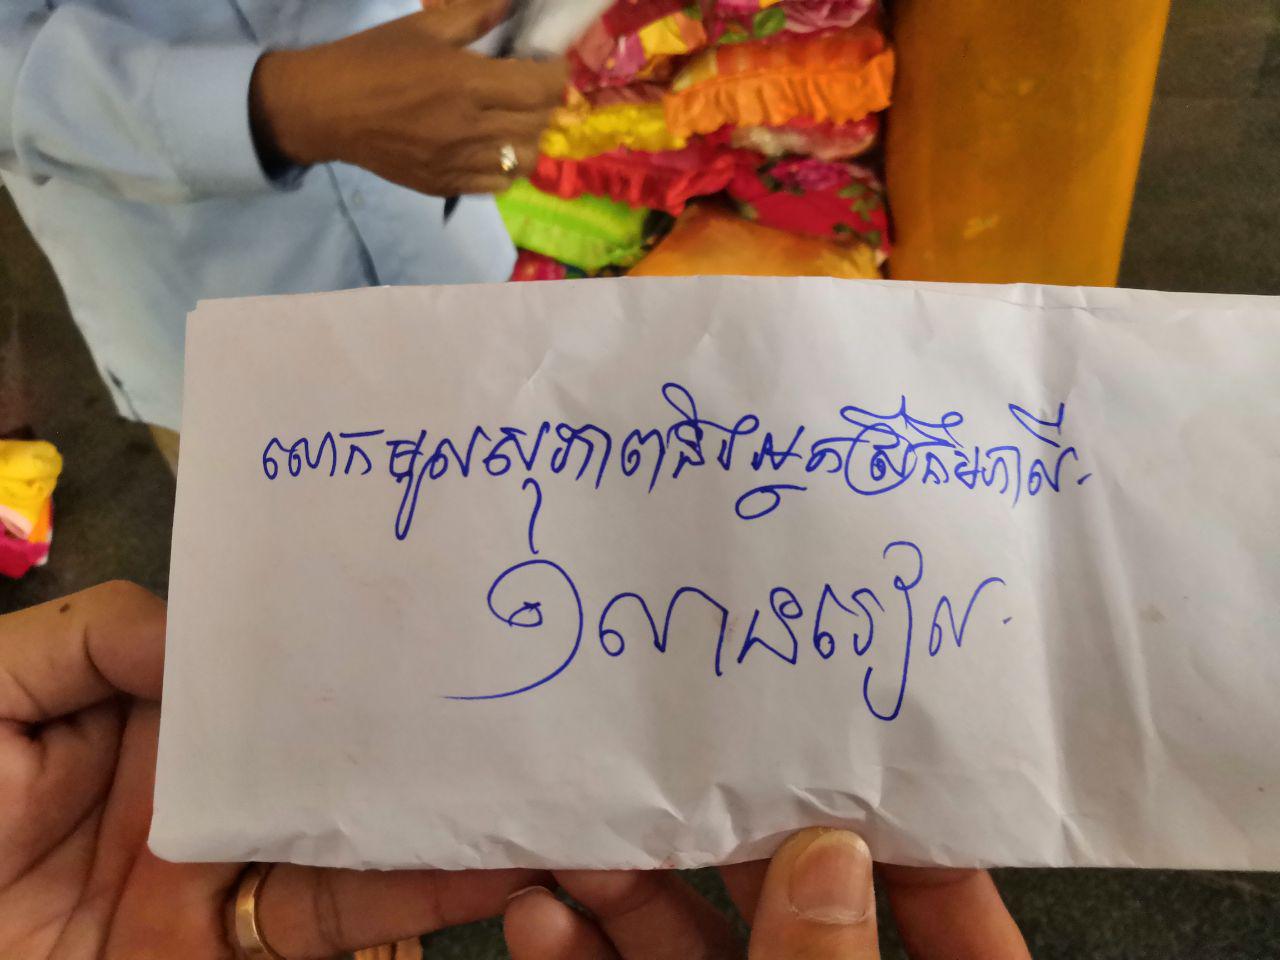 លោកមួលសុភាពនិងអ្នកស្រីគឹមហាលី.
១លានរៀល.